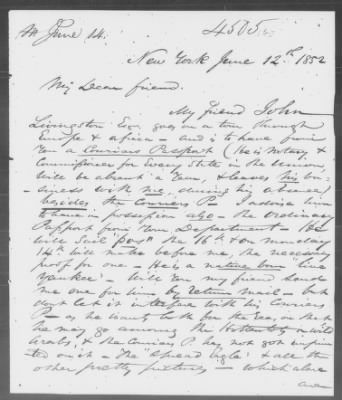 An June 14.
4505
New York June 12th 1852
My Dear friend.
My friend John
Livingston Esqr goes on a tour through
Europe & Africa — and is to have from
a Couriers Passport (He is Notary &
Commissioner for Every State in the Union)
Will be absent a Year, & leaves his bu-
-siness with me, during his absence)
besides the Couriers P— I advise him
to have in possession also — the ordinary
Passport from Your Department — He
will Sail "pos" the 16th & on Monday
14th will make before me, the necessary
proof for one — He is a nature born "live
Yankee" — Will You my friend Send
me one for him by return Mail — but
dont let it interfere with his Couriers
P— as he wants both for the
he may go among the Hottentots or wild
Arabs, & the Couriers P. has not got
on it — The "Spread Eagle" & all the
other pretty pictures — which alone